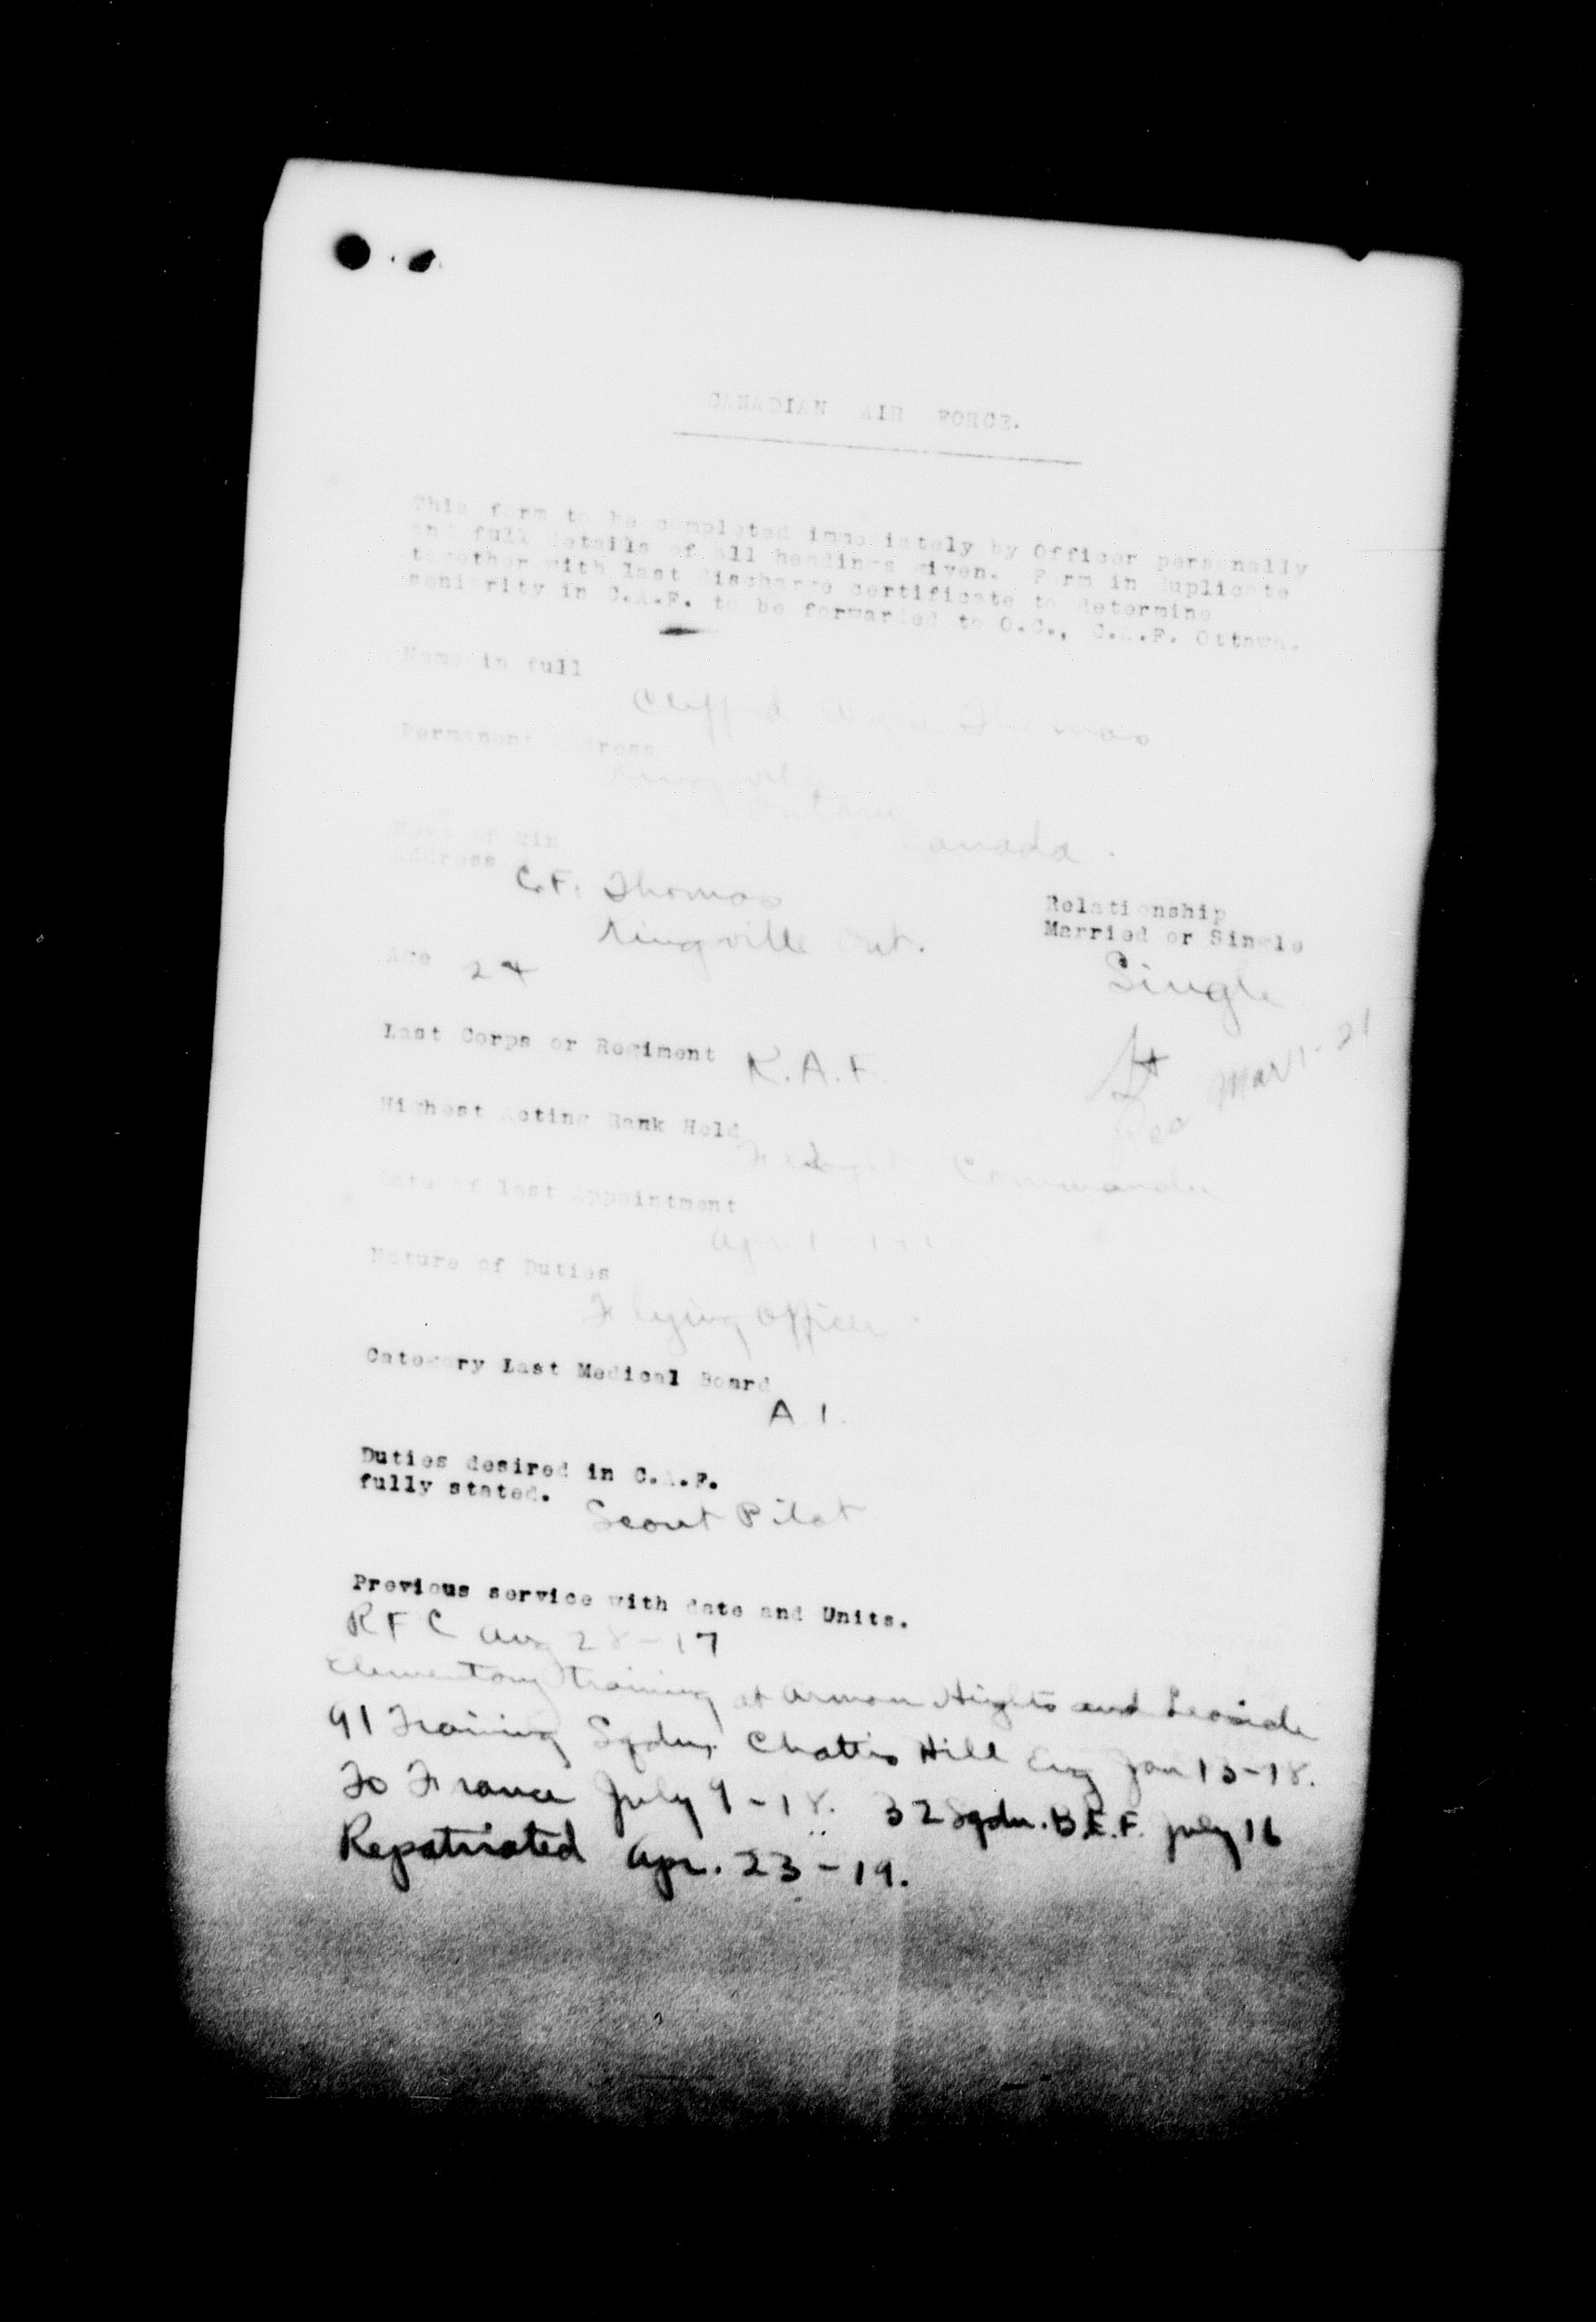 CANADIAN AIR FORCE.
This form to be completed immediately by Officer personally
and full details of all headings given. Form in duplicate
together with last discharge certificate to determine
seniority in C.A.F. to be forwarded to O.C., C.A.F. Ottawa.
Name in full
Clifford Thomas
Permanent Address
Kingsville
Ontario
Canada.
Next of kin
Address
C.F. Thomas
Kingsville Ont.
Relationship
Married or Single
Single
Age 24
Last Corps or Regiment R.A.F.
Mar 1-21
Highest Acting Rank Held
Flight Commander
Date of last Appointment
Apr 1
Nature of Duties
Flying Officer.
Category Last Medical Board
A.1.
Duties desired in C.A.F.
fully stated.
Scout Pilot
Previous service with date and Units.
RFC Aug 28-17
Elementary training at Armour Hights and Leaside
91 Training Sqdn. Chattis Hill Eng Jan 13-18.
To France July 9-18. 32 Sqdn. B.E.F. July 16
Repatriated Apr. 23-19.